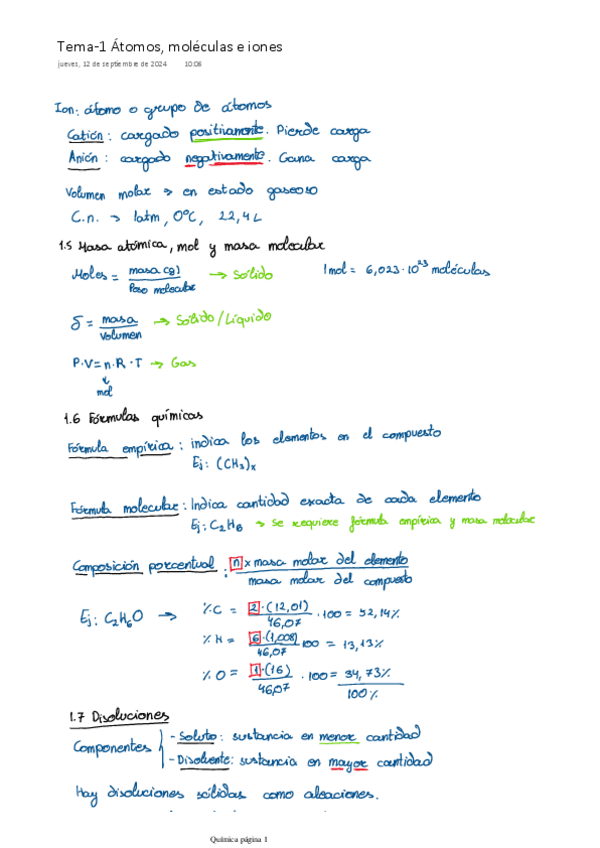 Tema-1 Átomos, moléculas e iones
jueves, 12 de septiembre de 2024 10:06
Ion: átomo o grupo de átomos
Catión: cargado positivamente. Pierde carga
Anión: cargado negativamente. Gana carga
Volumen molar → en estado gaseoso
C.n. → 1atm, 0ºC, 22,4L
1.5 Masa atómica, mol y masa molecular
Moles = masa (g) / Peso molecular → Sólido 1mol = 6,023·10²³ moléculas
δ = masa / volumen → Sólido/Líquido
P·V = n·R·T → Gas
mol
1.6 Fórmulas químicas
Fórmula empírica: indica los elementos en el compuesto
Ej: (CH₃)ₓ
Fórmula molecular: Indica cantidad exacta de cada elemento
Ej: C₂H₆ → Se requiere fórmula empírica y masa molecular
Composición porcentual: n x masa molar del elemento / masa molar del compuesto
Ej: C₂H₆O → % C = 2·(12,01) / 46,07 · 100 = 52,14%
% H = 6·(1,008) / 46,07 100 = 13,13%
% O = 1·(16) / 46,07 · 100 = 34,73%
100%
1.7 Disoluciones
Componentes - Soluto: sustancia en menor cantidad
- Disolvente: sustancia en mayor cantidad
Hay disoluciones sólidas como aleaciones.
Química página 1